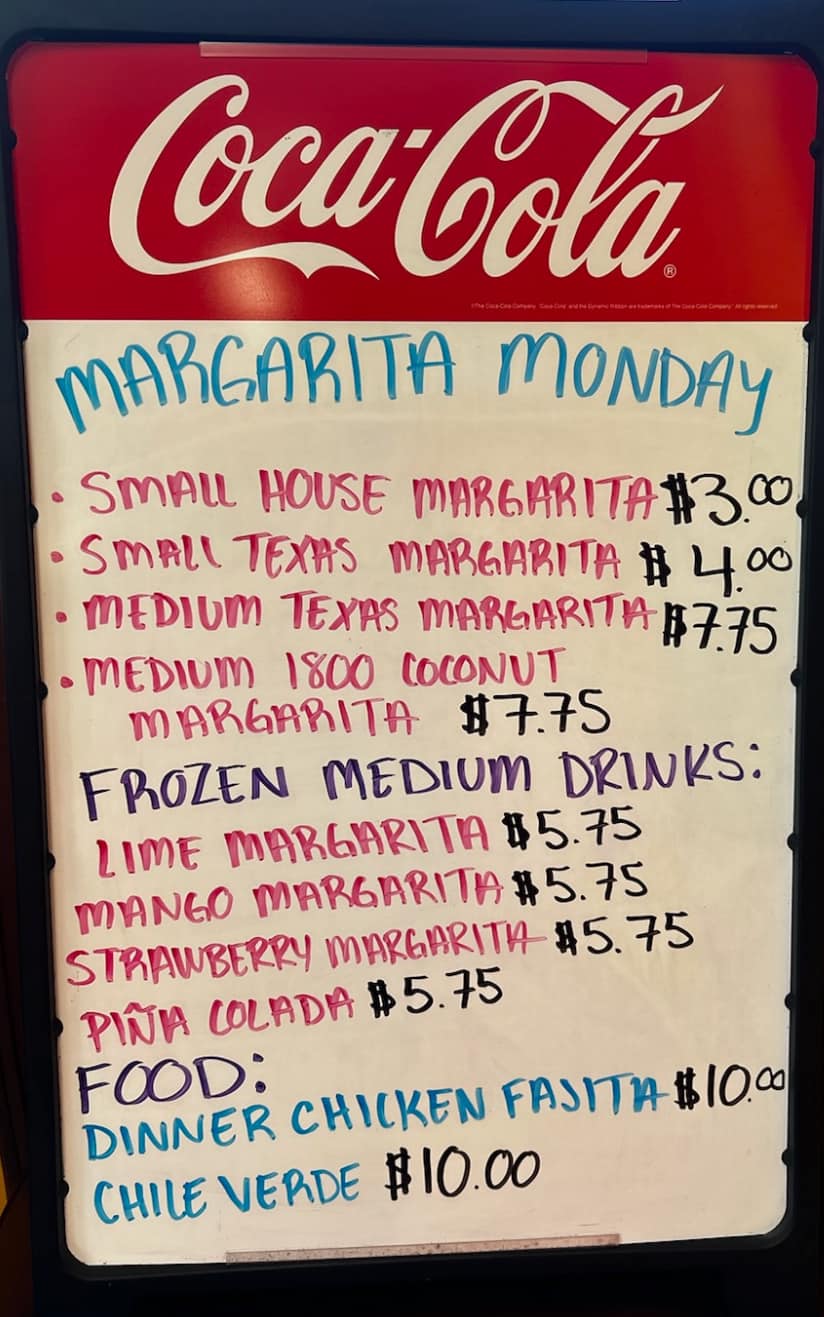 Coca-Cola®
©The Coca-Cola Company. "Coca-Cola" and the Dynamic Ribbon are trademarks of The Coca-Cola Company. All rights reserved.
MARGARITA MONDAY
• SMALL HOUSE MARGARITA $3.00
• SMALL TEXAS MARGARITA $4.00
• MEDIUM TEXAS MARGARITA $7.75
• MEDIUM 1800 COCONUT
MARGARITA $7.75
FROZEN MEDIUM DRINKS:
LIME MARGARITA $5.75
MANGO MARGARITA $5.75
STRAWBERRY MARGARITA $5.75
PIÑA COLADA $5.75
FOOD:
DINNER CHICKEN FAJITA $10.00
CHILE VERDE $10.00